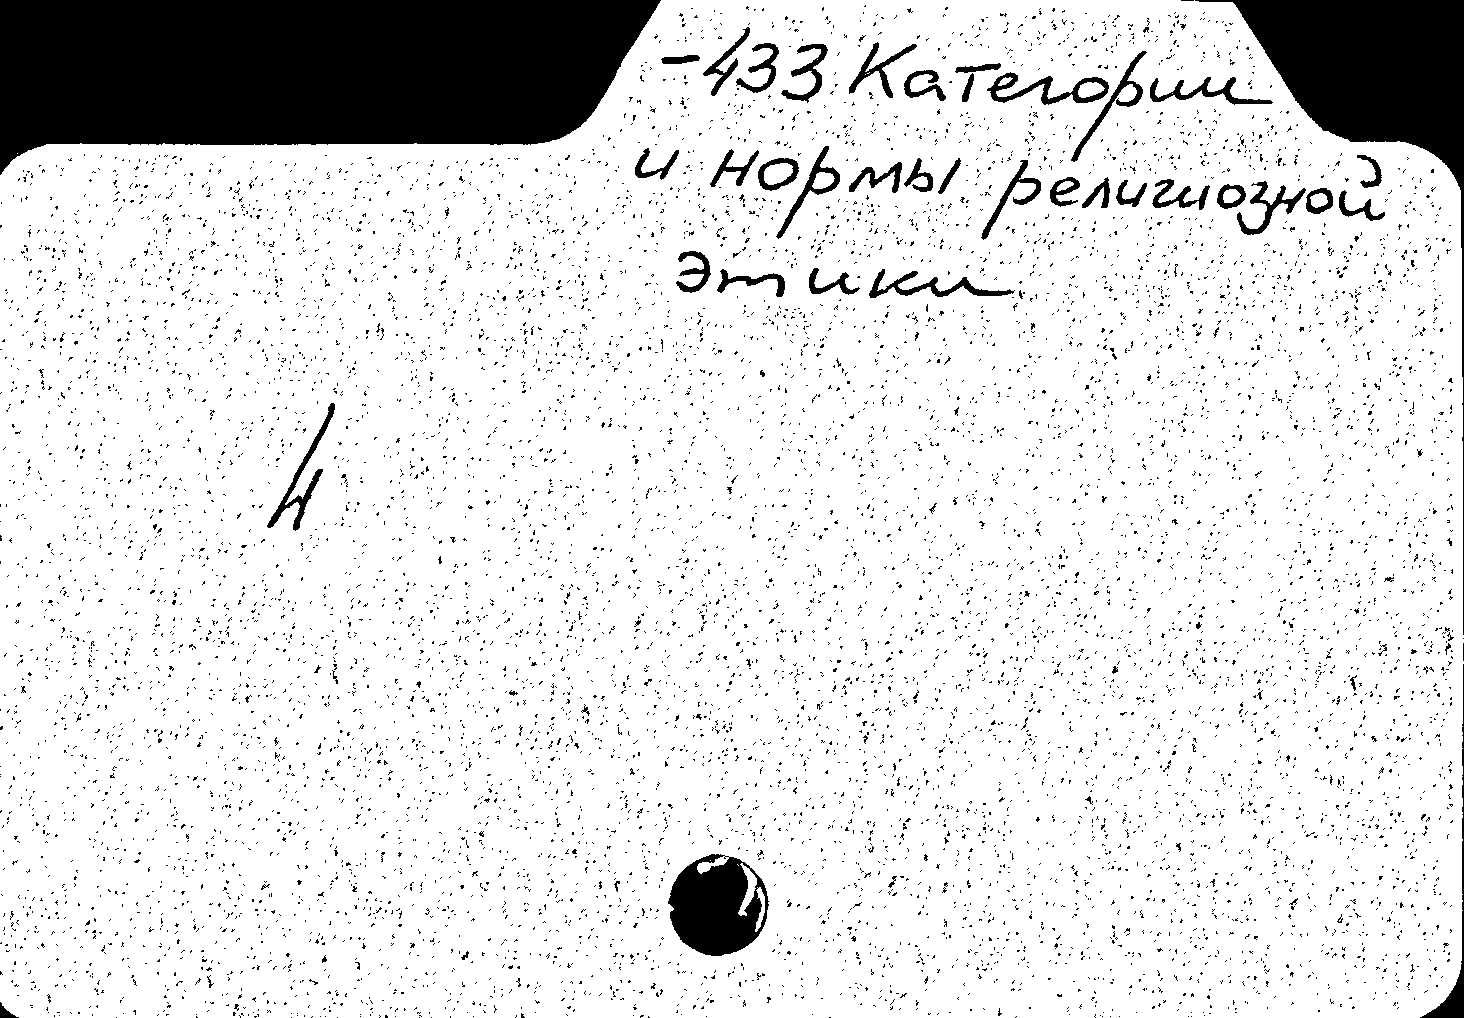 -433 Категории
и нормы религиозной
этики
4